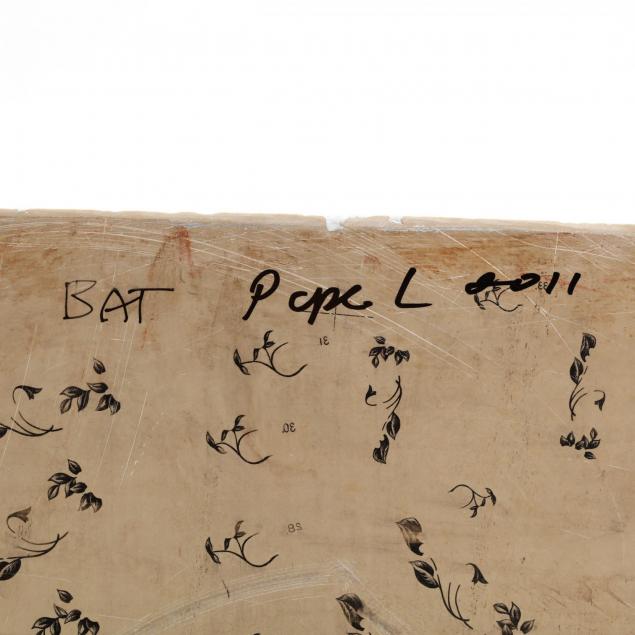 BAT Pepe L 0011
31
30
28